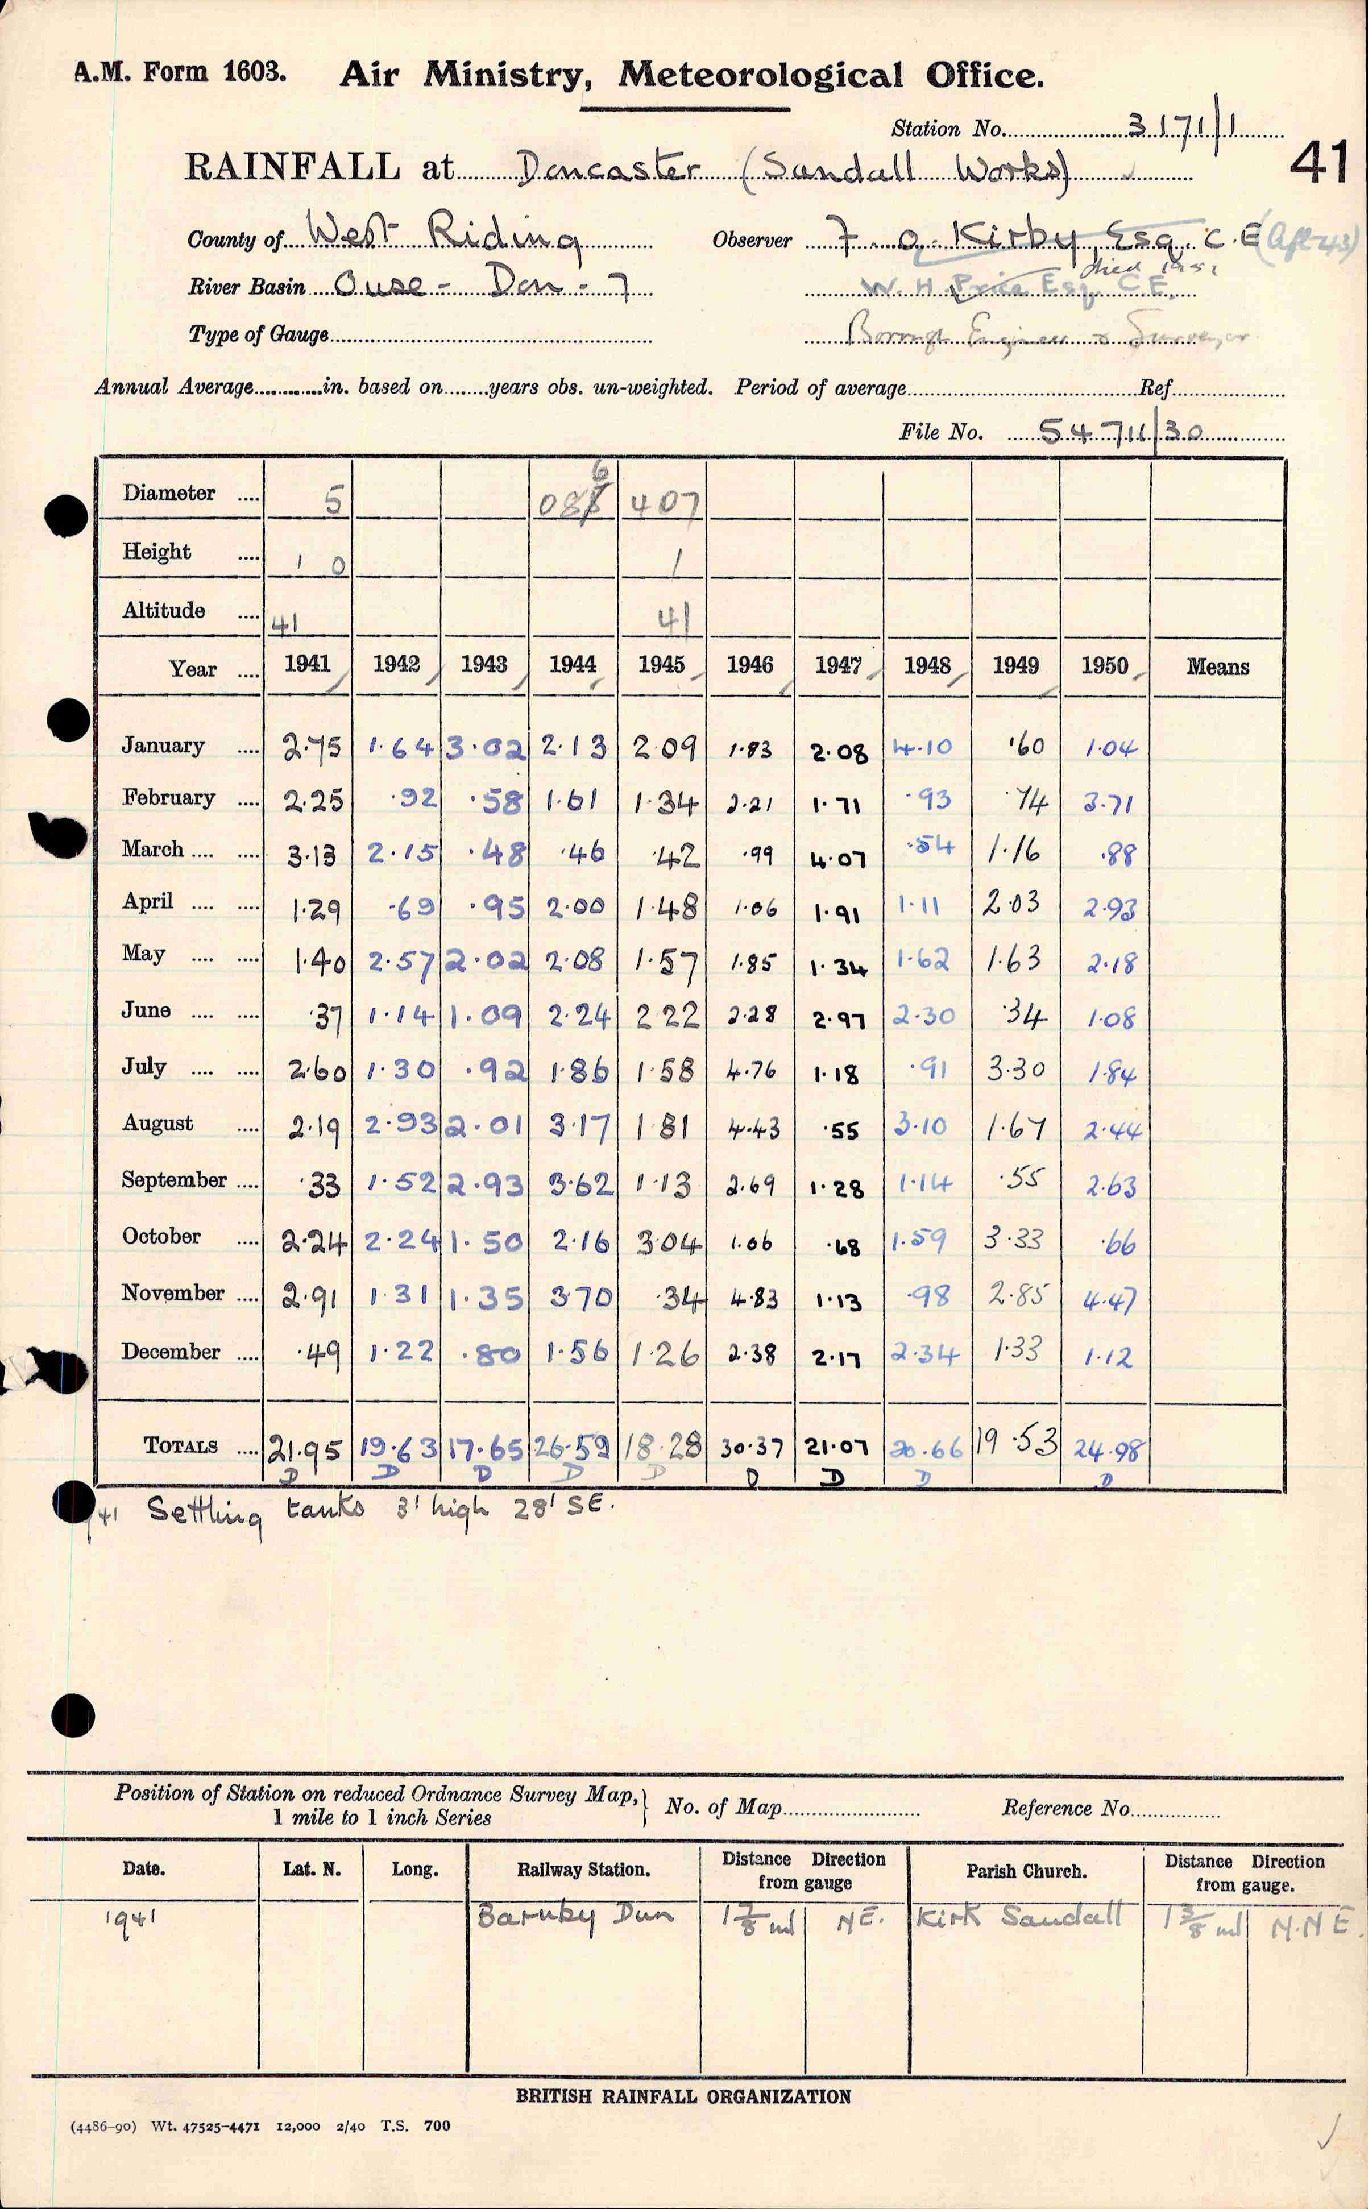 A.M. Form 1603. Air Ministry, Meteorological Office.
Station No. 3171/1
41
RAINFALL at Doncaster (Sandall Works)
County of West Riding Observer F. O. Kirby, Esq. C.E. (Apl-43)
died 1951
River Basin Ouse - Don - 7 W. H. Price Esq. C.E.
Type of Gauge Borough Engineer & Surveyor
Annual Average in. based on years obs. un-weighted. Period of average Ref
File No. 54711/30
6
Diameter 5 088 407
Height 1 0 1
Altitude 41 41
Year 1941 1942 1943 1944 1945 1946 1947 1948 1949 1950 Means
January 2.75 1.64 3.02 2.13 2.09 1.83 2.08 4.10 .60 1.04
February 2.25 .92 .58 1.61 1.34 2.21 1.71 .93 .74 3.71
March 3.13 2.15 .48 .46 .42 .99 4.07 .54 1.16 .88
April 1.29 .69 .95 2.00 1.48 1.06 1.91 1.11 2.03 2.93
May 1.40 2.57 2.02 2.08 1.57 1.85 1.34 1.62 1.63 2.18
June .37 1.14 1.09 2.24 2 22 2.28 2.97 2.30 .34 1.08
July 2.60 1.30 .92 1.86 1.58 4.76 1.18 .91 3.30 1.84
August 2.19 2.93 2.01 3.17 1 81 4.43 .55 3.10 1.67 2.44
September .33 1.52 2.93 3.62 1.13 2.69 1.28 1.14 .55 2.63
October 2.24 2.24 1.50 2.16 3.04 1.06 .68 1.59 3.33 .66
November 2.91 1.31 1.35 3.70 .34 4.83 1.13 .98 2.85 4.47
December .49 1.22 .80 1.56 1.26 2.38 2.17 2.34 1.33 1.12
TOTALS 21.95 19.63 17.65 26.59 18.28 30.37 21.07 20.66 19.53 24.98
D D D D D D D D D
41 Settling tanks 3' high 28' SE.
Position of Station on reduced Ordnance Survey Map, 1 mile to 1 inch Series No. of Map Reference No.
Date. Lat. N. Long. Railway Station. Distance Direction from gauge Parish Church. Distance Direction from gauge.
1941 Barnby Dun 1 7/8 ml NE. Kirk Sandall 1 3/8 ml N.N E.
BRITISH RAINFALL ORGANIZATION
(4486-90) Wt. 47525-4471 12,000 2/40 T.S. 700